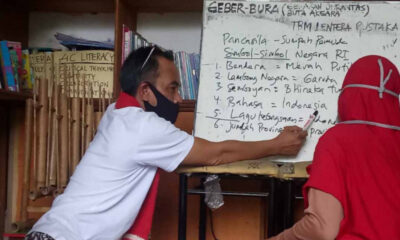 GEBER-BURA
BUTA AKSARA
TBM LENTERA PUSTAKA
Pancasila - Sumpah Pemuda
Simbol-Simbol Negara RI
1. Bendera = Merah Puti
2. Lambang Negara = Garuda
3. Semboyan = Bhineka Tu
4. Bahasa = Indonesia
5. Lagu Kebangsaan =
6. Jumlah Provinsi
AC LITERACY
SOCIETY